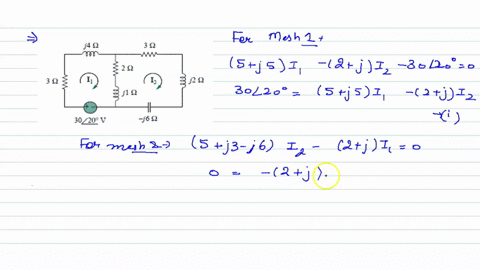 ⇒
j4 Ω
3 Ω
3 Ω
I₁
2 Ω
I₂
j2 Ω
j1 Ω
30∠20° V
-j6 Ω
For Mesh 1 →
(5+j5)I₁ -(2+j)I₂ -30∠20°=0
30∠20° = (5+j5)I₁ -(2+j)I₂
→(i)
For mesh 2 → (5+j3-j6) I₂ - (2+j)I₁ = 0
0 = -(2+j).